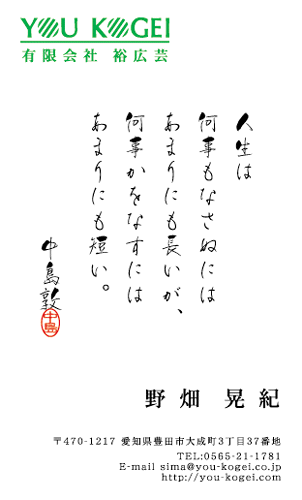 YOU KOGEI
有限会社 裕広芸
人生は
何事もなさぬには
あまりにも長いが、
何事かをなすには
あまりにも短い。
中島敦
中島
野畑 晃紀
〒470-1217 愛知県豊田市大成町3丁目37番地
TEL:0565-21-1781
E-mail sima@you-kogei.co.jp
http://you-kogei.com